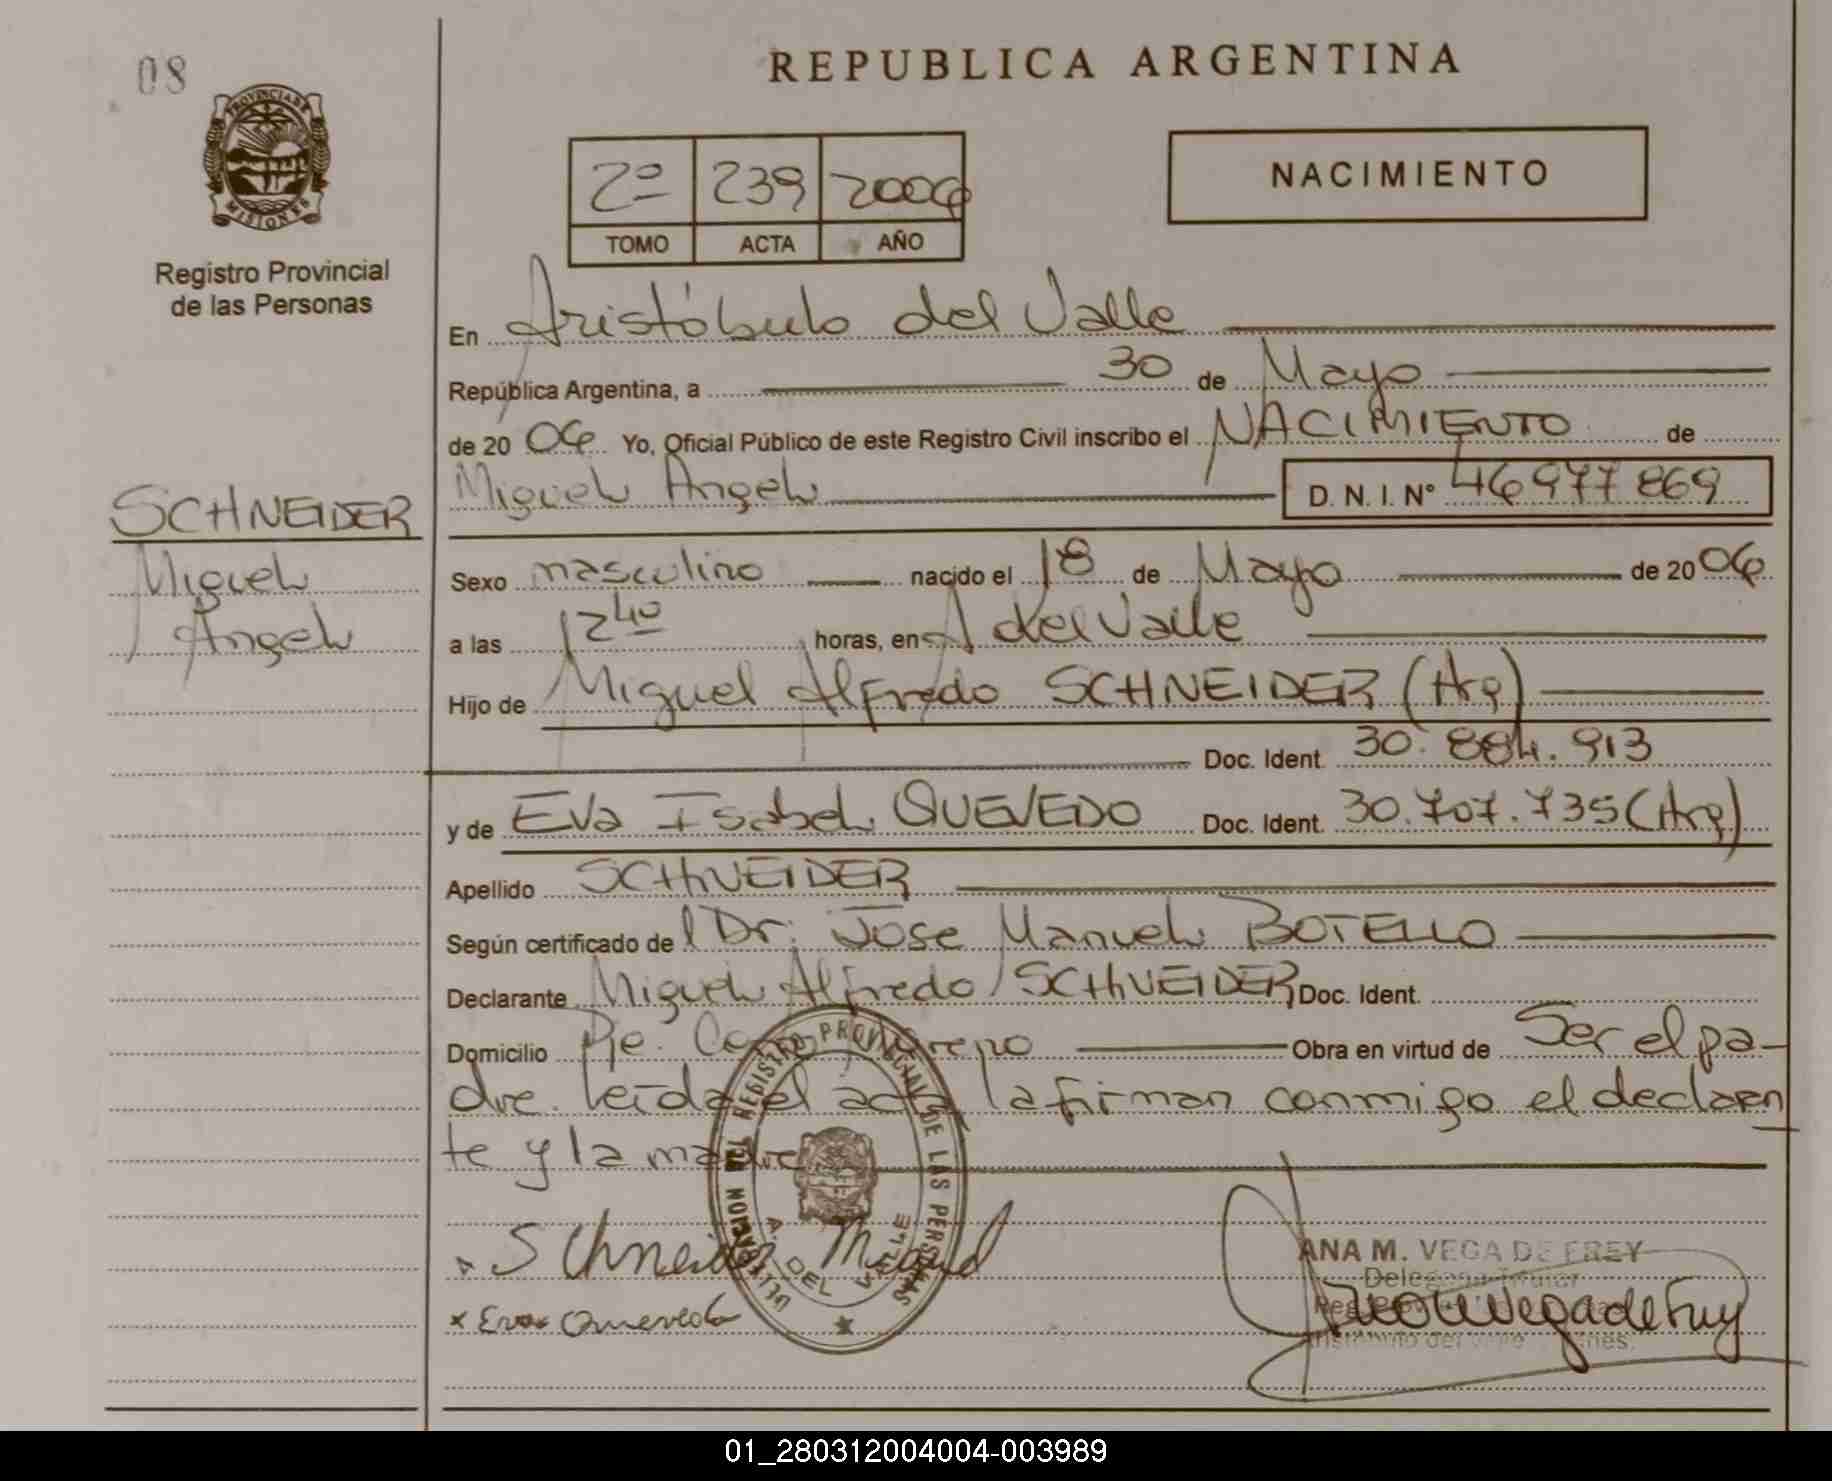 08
REPUBLICA ARGENTINA
PROVINCIA DE
MISIONES
Registro Provincial
de las Personas
2º 239 2006
TOMO ACTA AÑO
NACIMIENTO
En Aristóbulo del Valle
República Argentina, a 30 de Mayo
de 20 06 Yo, Oficial Público de este Registro Civil inscribo el NACIMIENTO de
Miguel Angel D. N. I. Nº 46977869
SCHNEIDER
Miguel
Angel
Sexo masculino nacido el 18 de Mayo de 20 06
a las 12 40 horas, en A del Valle
Hijo de Miguel Alfredo SCHNEIDER (Arg)
Doc. Ident. 30.884.913
y de Eva Isabel QUEVEDO Doc. Ident. 30.707.735 (Arg)
Apellido SCHNEIDER
Según certificado del Dr. Jose Manuel BOTELLO
Declarante Miguel Alfredo SCHNEIDER Doc. Ident.
Domicilio Pje. Obra en virtud de Ser el pa-
dre. leída el acta la firman conmigo el declaran
te y la madre
REGISTRO PROVINCIAL DE LAS PERSONAS
A. DEL VALLE
Schneider Miguel
x Eva Quevedo
ANA M. VEGA DE FREY
Delegada Titular
Aristóbulo del Valle
01_280312004004-003989